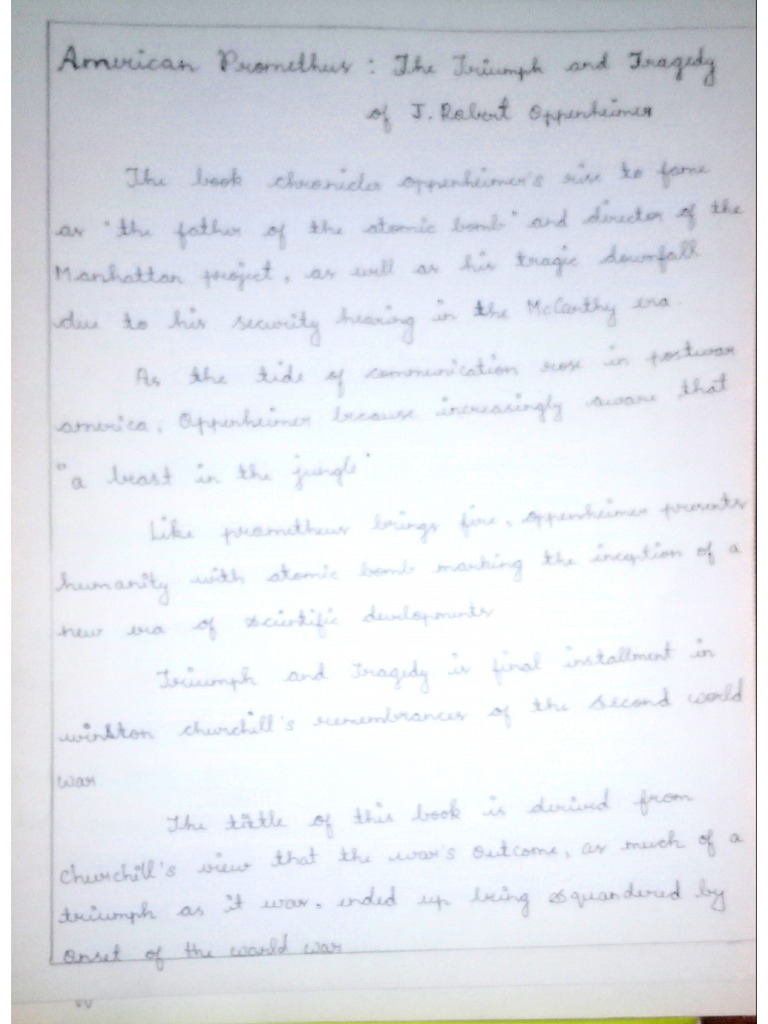 American Prometheus : The Triumph and Tragedy
of J. Robert Oppenheimer
The book chronicles oppenheimer's rise to fame
as "the father of the atomic bomb" and director of the
Manhattan project, as well as his tragic downfall
due to his security hearing in the McCarthy era.
As the tide of communication rose in postwar
america, Oppenheimer became increasingly aware that
"a beast in the jungle"
Like prometheus brings fire, oppenheimer presents
humanity with atomic bomb marking the inception of a
new era of scientific devlopments
Triumph and Tragedy is final installment in
winston churchill's remembrances of the second world
war
The tittle of this book is derived from
churchill's view that the war's outcome, as much of a
triumph as it war, ended up being squandered by
onset of the world war